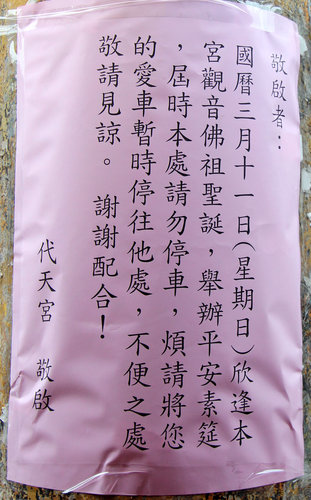 敬啟者：
國曆三月十一日(星期日)欣逢本
宮觀音佛祖聖誕，舉辦平安素筵
，屆時本處請勿停車，煩請將您
的愛車暫時停往他處，不便之處
敬請見諒。　謝謝配合！
代天宮　敬啟